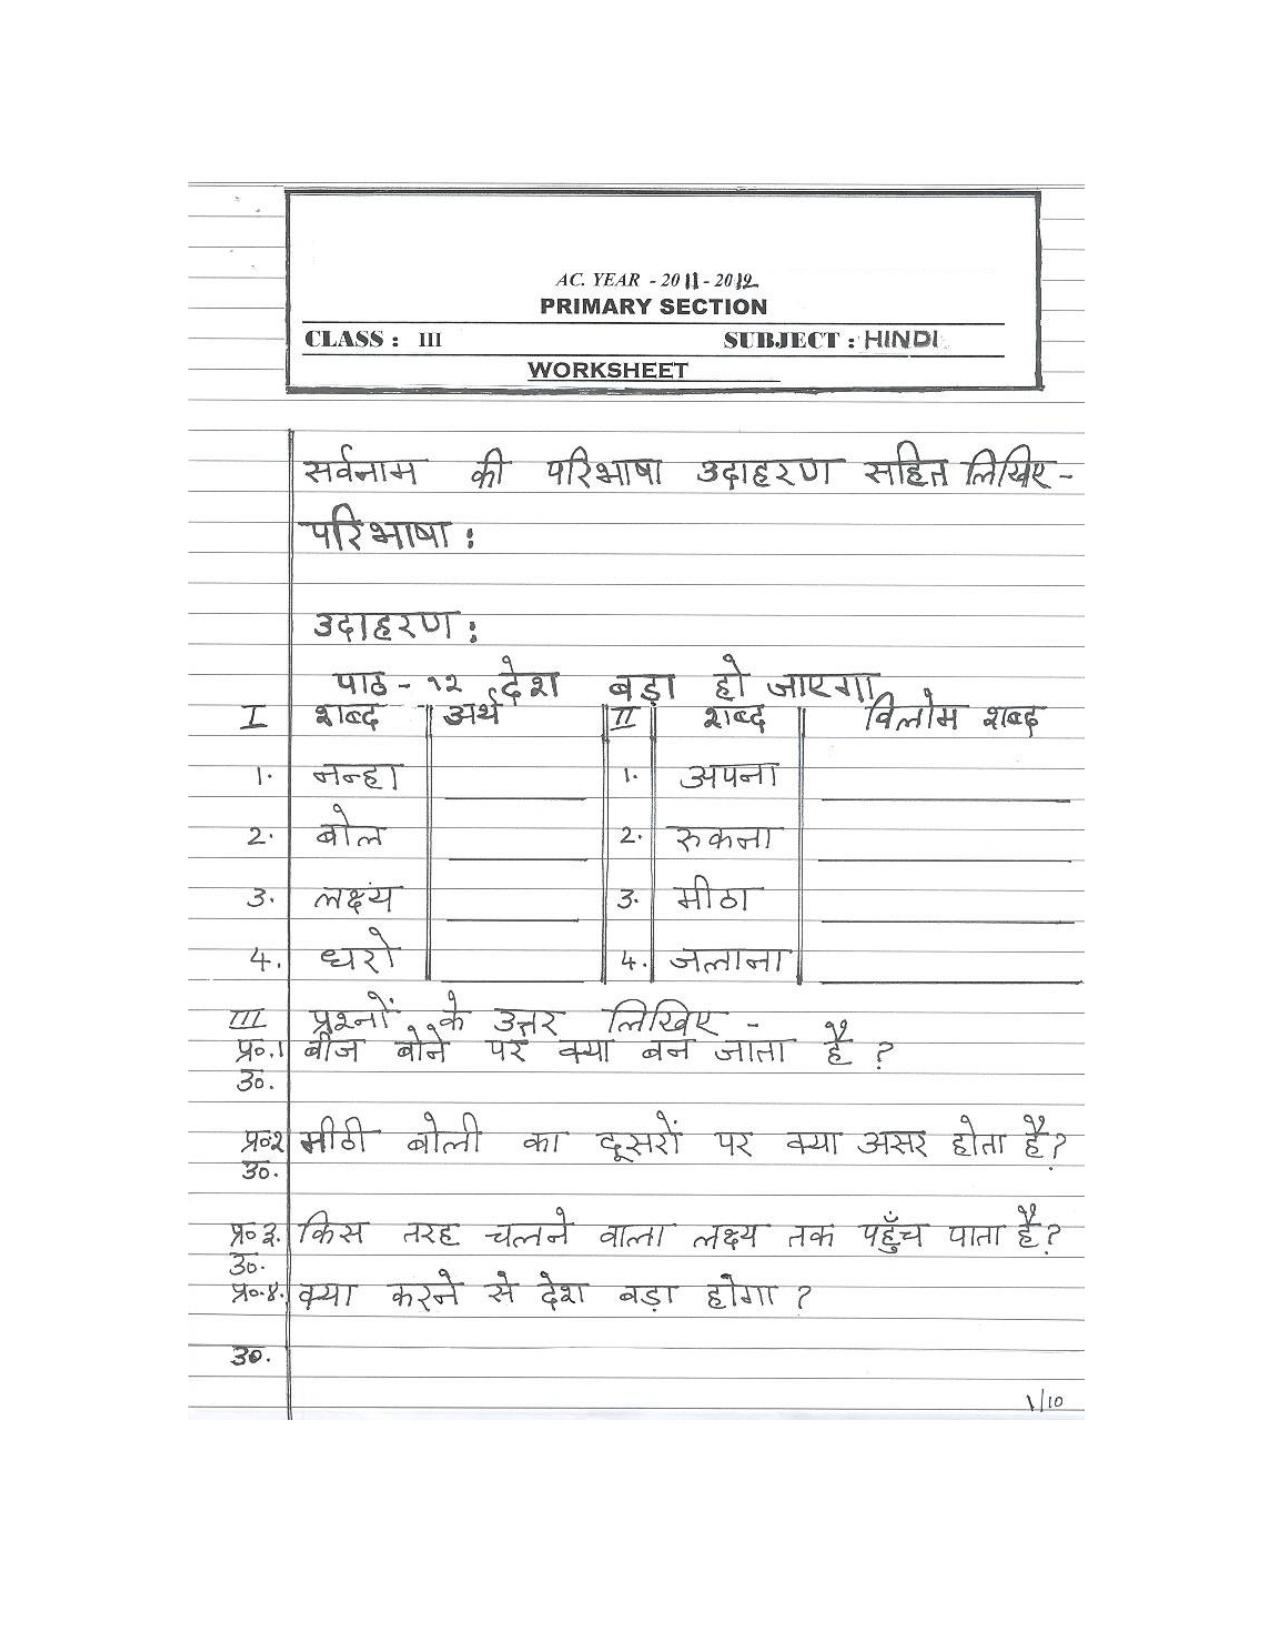 AC. YEAR - 2011-2012
PRIMARY SECTION
CLASS : III SUBJECT : HINDI
WORKSHEET
सर्वनाम की परिभाषा उदाहरण सहित लिखिए -
परिभाषा :
उदाहरण :
पाठ - १२ देश बड़ा हो जाएगा
I शब्द अर्थ II शब्द विलोम शब्द
1. नन्हा 1. अपना
2. बोल 2. रुकना
3. लक्ष्यं 3. मीठा
4. धरो 4. जलाना
III प्रश्नों के उत्तर लिखिए -
प्र०.1 बीज बोने पर क्या बन जाता है ?
उ०.
प्र०२ मीठी बोली का दूसरों पर क्या असर होता है?
उ०.
प्र० ३. किस तरह चलने वाला लक्ष्य तक पहुँच पाता है?
उ०.
प्र०.४. क्या करने से देश बड़ा होगा ?
उ०.
1/10